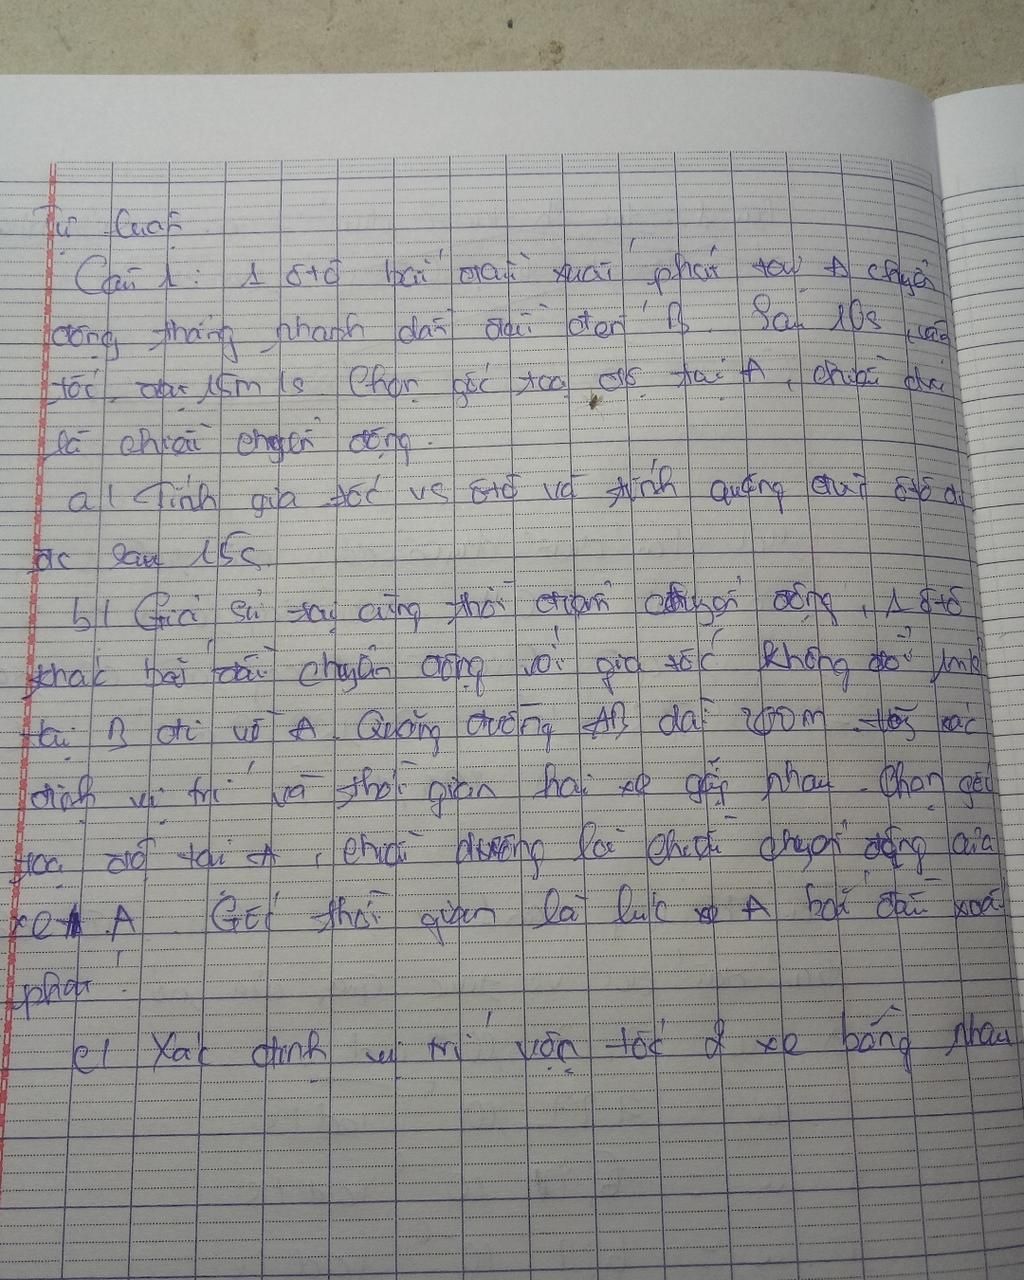 Tự luận
Câu 1: 1 ôtô bắt đầu xuất phát tại A chuyển
động thẳng nhanh dần đều đến B. Sau 10s vận
tốc đạt 15m/s Chọn gốc toạ độ tại A, chiều
là chiều chuyển động.
a/ Tính gia tốc vs ôtô và tính quãng đường ôtô đi
đc sau 15s.
b/ Giả sử tại cùng thời điểm chuyển động, 1 ôtô
khác bắt đầu chuyển động với gia tốc không đổi
từ B đi về A. Quãng đường AB dài m. xác
định vị trí và thời gian hai xe gặp nhau. Chọn gốc
toạ độ tại A, chiều dương là chiều chuyển động của
xe A. Gốc thời gian là lúc xe A bắt đầu xuất
phát.
c/ Xác định vị trí vận tốc 2 xe bằng nhau